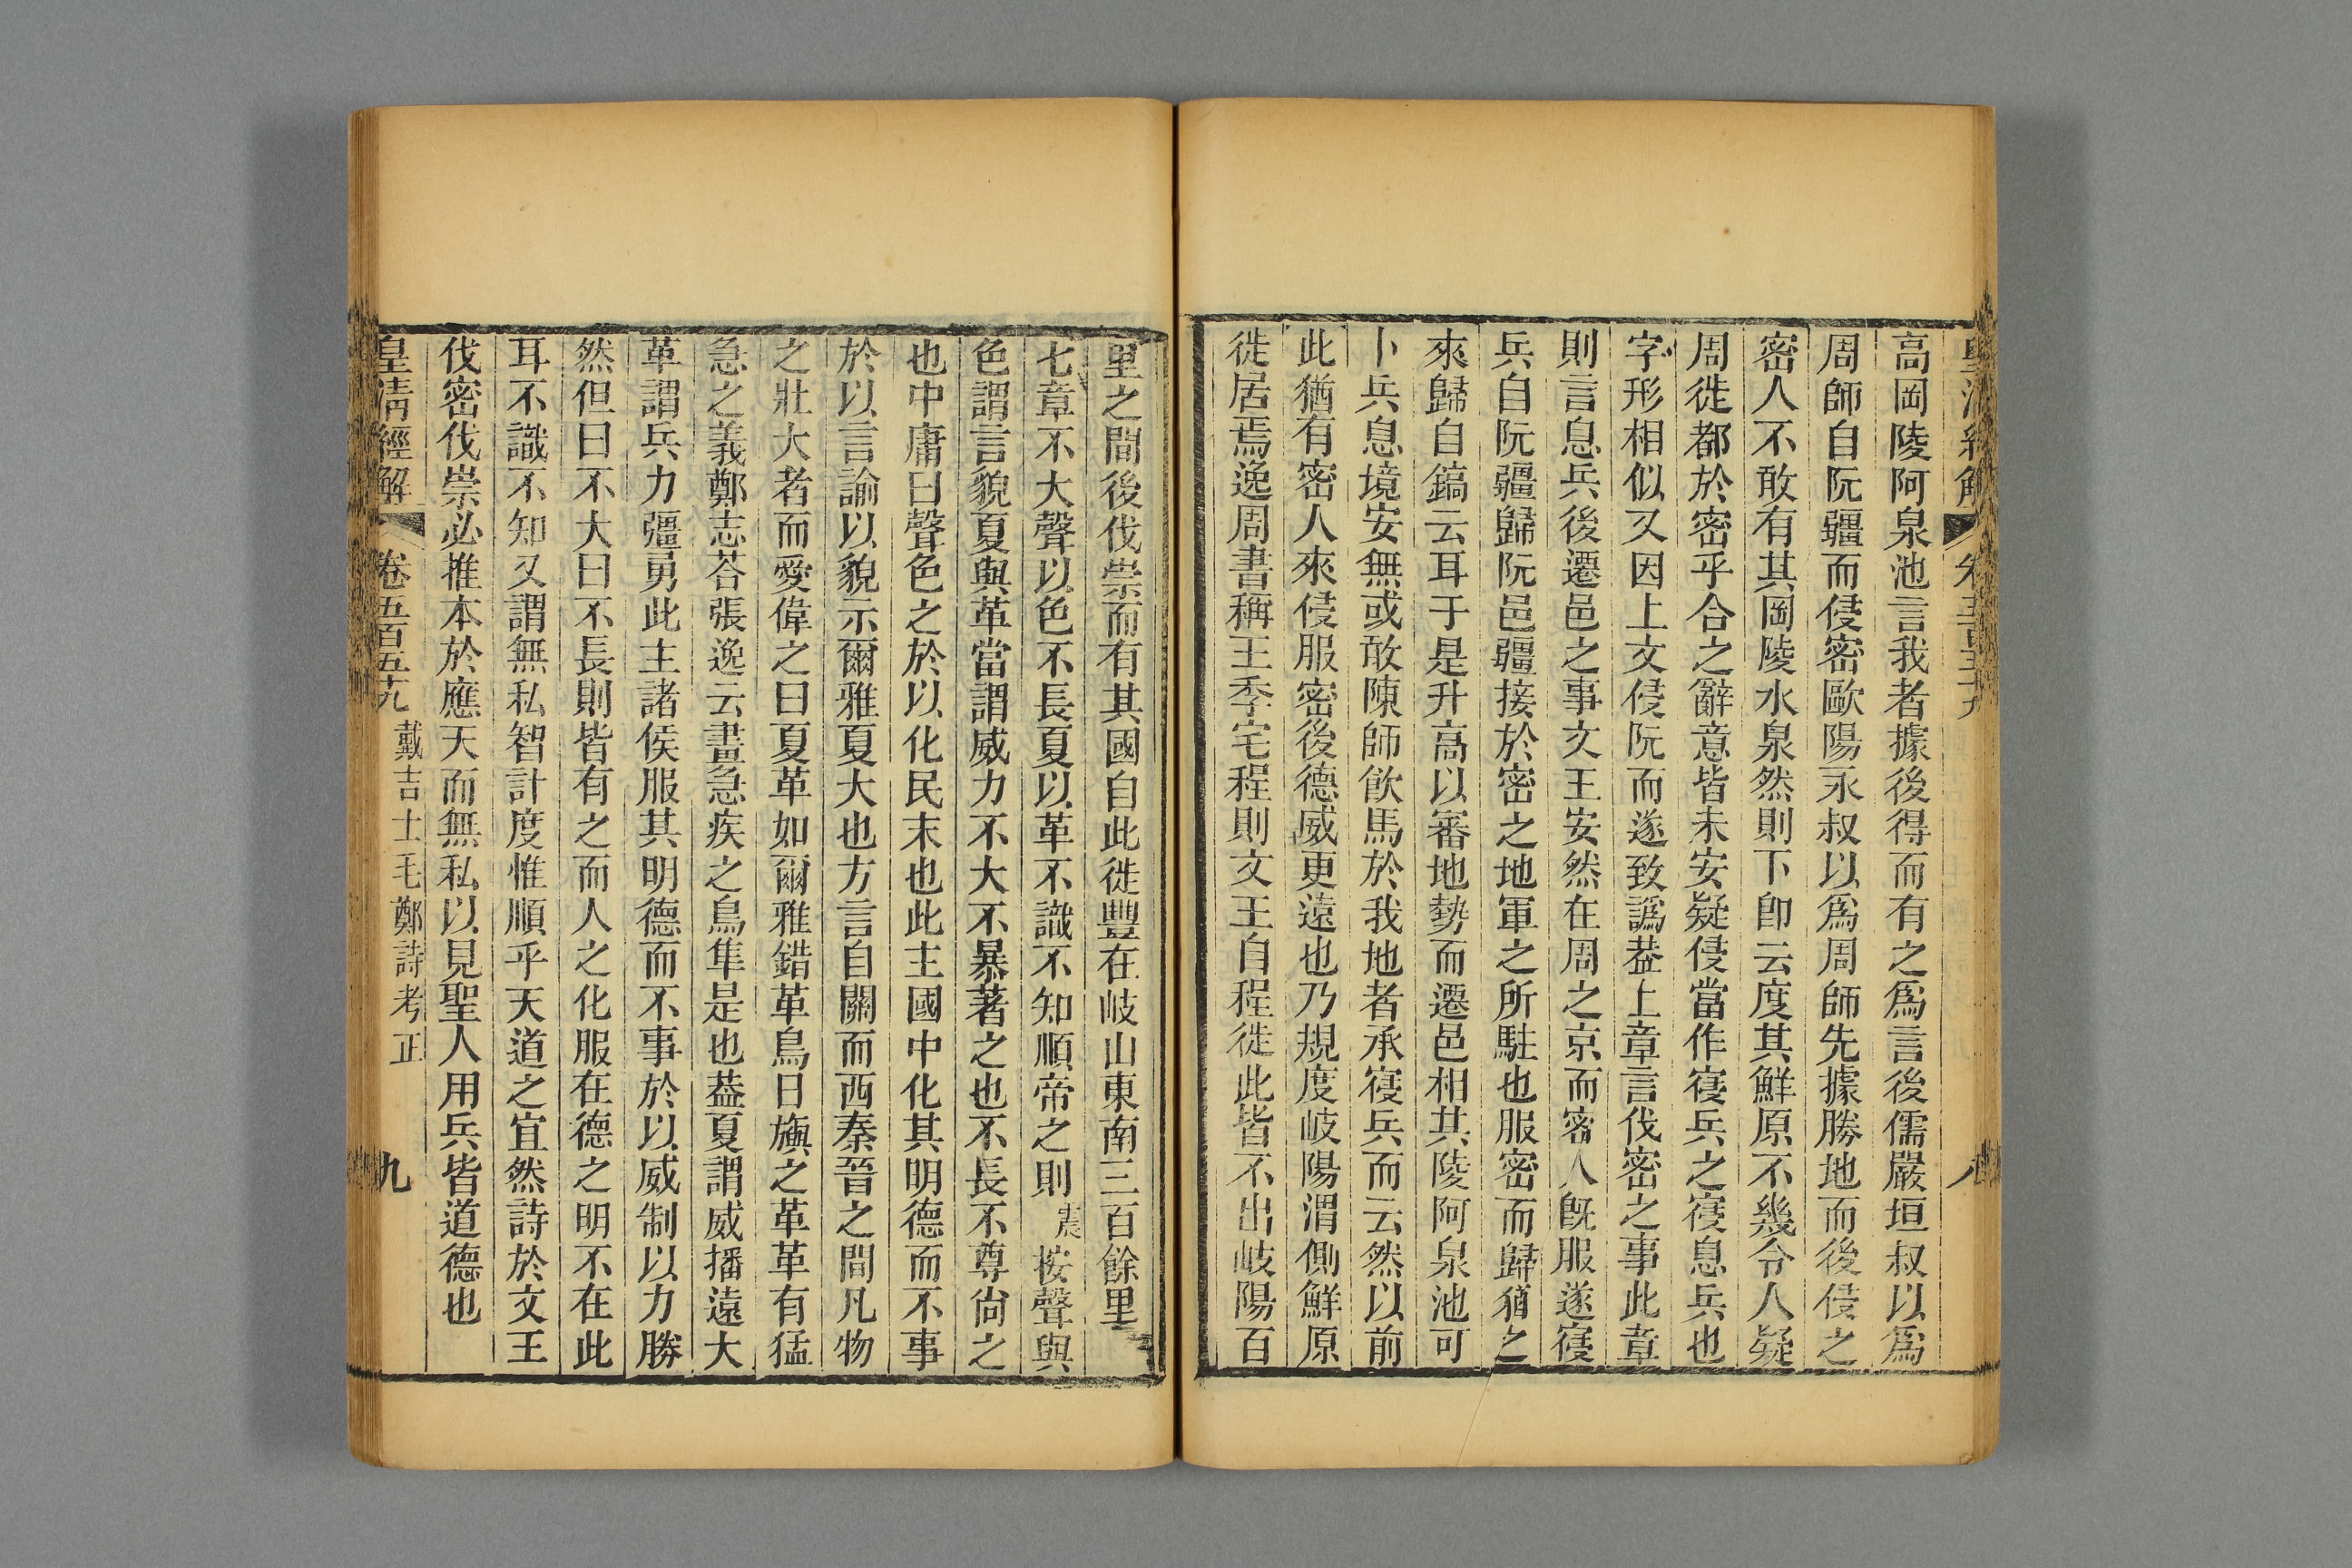 高岡陵阿泉池言我者據後得而有之爲言後儒嚴垣叔以爲
周師自阮疆而侵密歐陽永叔以爲周師先據勝地而後侵之
密人不敢有其岡陵水泉然則下卽云度其鮮原不幾令人疑
周徙都於密乎合之辭意皆未安疑侵當作寑兵之寑息兵也
字形相似又因上文侵阮而遂致譌葢上章言伐密之事此章
則言息兵後遷邑之事文王安然在周之京而密人旣服遂寑
兵自阮疆歸阮邑疆接於密之地軍之所駐也服密而歸猶之
來歸自鎬云耳于是升高以審地勢而遷邑相其陵阿泉池可
卜兵息境安無或敢陳師飮馬於我地者承寑兵而云然以前
此猶有密人來侵服密後德威更遠也乃規度岐陽渭側鮮原
徙居焉逸周書稱王季宅程則文王自程徙此皆不出岐陽百
里之間後伐崇而有其國自此徙豐在岐山東南三百餘里
七章不大聲以色不長夏以革不識不知順帝之則 震 按聲與
色謂言貌夏與革當謂威力不大不暴著之也不長不尊尙之
也中庸曰聲色之於以化民末也此主國中化其明德而不事
於以言諭以貌示爾雅夏大也方言自關而西秦晉之間凡物
之壯大者而愛偉之曰夏革如爾雅錯革鳥曰旟之革革有猛
急之義鄭志荅張逸云畫急疾之鳥隼是也葢夏謂威播遠大
革謂兵力彊勇此主諸侯服其明德而不事於以威制以力勝
然但曰不大曰不長則皆有之而人之化服在德之明不在此
耳不識不知又謂無私智計度惟順乎天道之宜然詩於文王
伐密伐崇必推本於應天而無私以見聖人用兵皆道德也
皇淸經解 卷五百五十九 戴吉士毛鄭詩考正 九